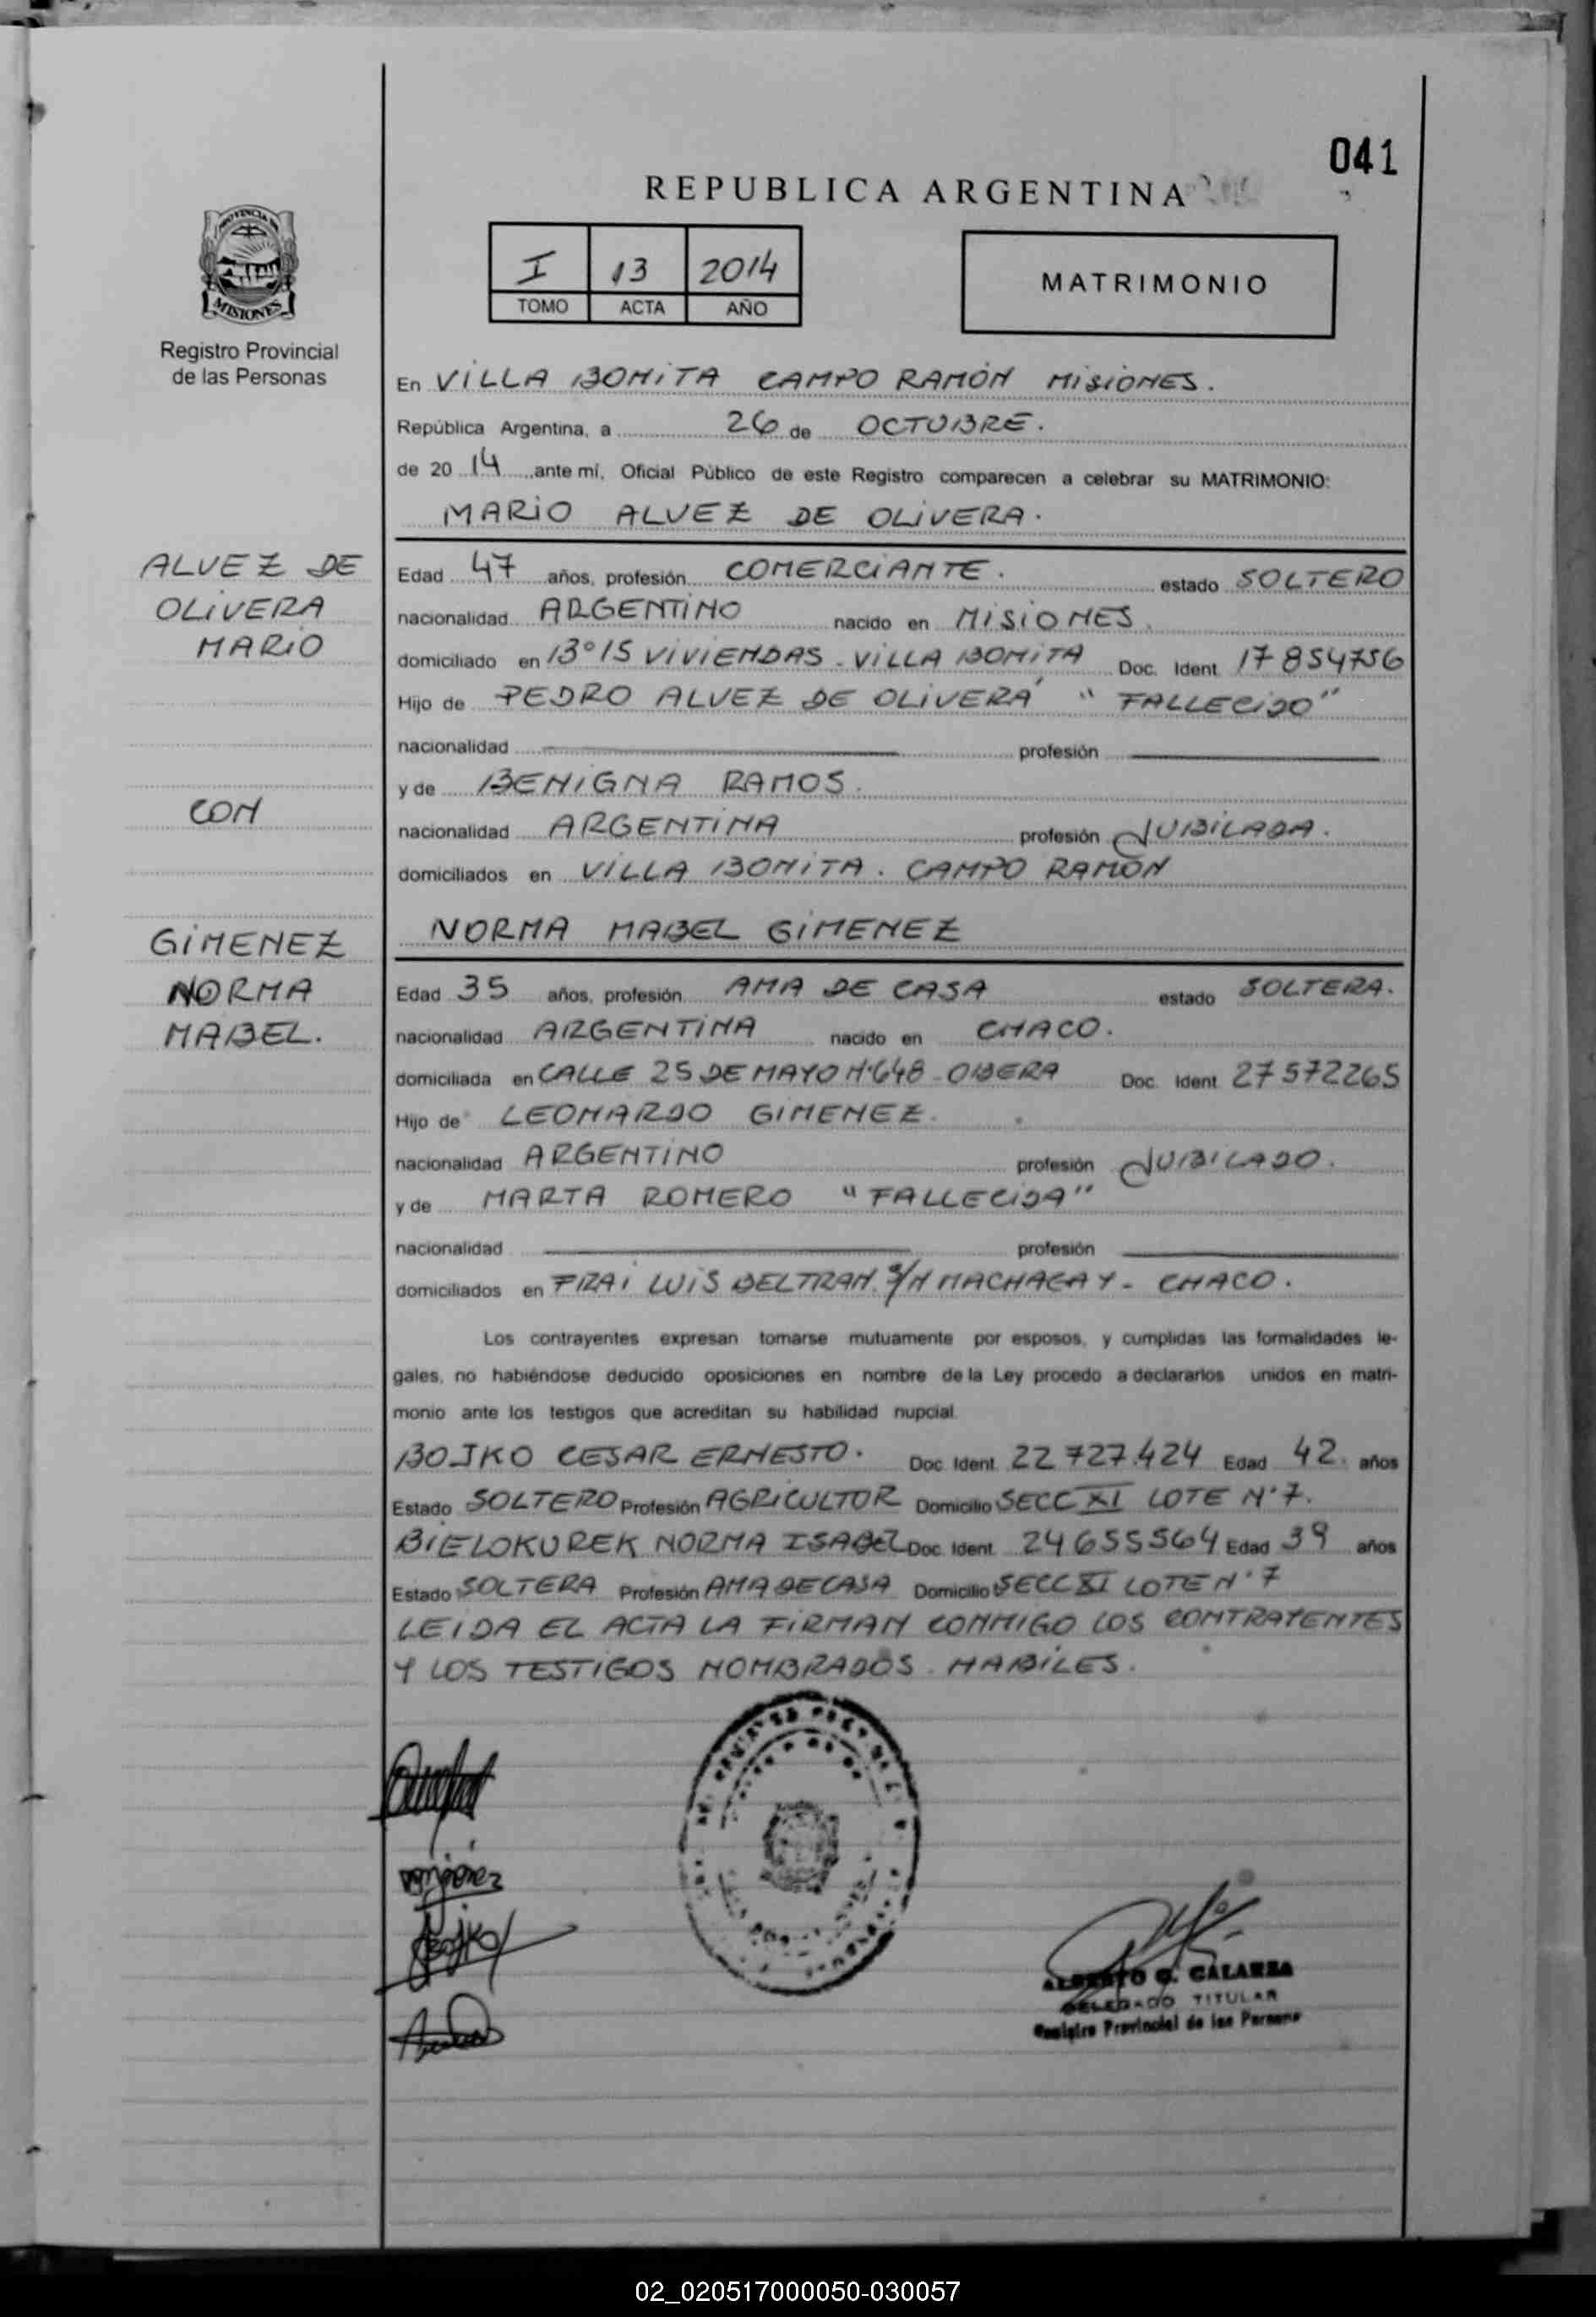 041
REPUBLICA ARGENTINA
PROVINCIA DE
MISIONES
Registro Provincial
de las Personas
I 13 2014
TOMO ACTA AÑO
MATRIMONIO
En VILLA BONITA CAMPO RAMÓN MISIONES.
República Argentina, a 26 de OCTUBRE.
de 20 14 ante mí, Oficial Público de este Registro comparecen a celebrar su MATRIMONIO:
MARIO ALVEZ DE OLIVERA.
ALVEZ DE
OLIVERA
MARIO
CON
GIMENEZ
NORMA
MABEL.
Edad 47 años, profesión COMERCIANTE. estado SOLTERO
nacionalidad ARGENTINO nacido en MISIONES.
domiciliado en Bº 15 VIVIENDAS - VILLA BONITA Doc. Ident. 17854756
Hijo de PEDRO ALVEZ DE OLIVERA "FALLECIDO"
nacionalidad profesión
y de BENIGNA RAMOS.
nacionalidad ARGENTINA profesión JUBILADA.
domiciliados en VILLA BONITA. CAMPO RAMÓN
NORMA MABEL GIMENEZ
Edad 35 años, profesión AMA DE CASA estado SOLTERA.
nacionalidad ARGENTINA nacido en CHACO.
domiciliada en CALLE 25 DE MAYO Nº 648 - OBERA Doc. Ident. 27572265
Hijo de LEONARDO GIMENEZ.
nacionalidad ARGENTINO profesión JUBILADO.
y de MARTA ROMERO "FALLECIDA"
nacionalidad profesión
domiciliados en FRAI LUIS BELTRAN S/N MACHAGAY - CHACO.
Los contrayentes expresan tomarse mutuamente por esposos, y cumplidas las formalidades le-
gales, no habiéndose deducido oposiciones en nombre de la Ley procedo a declararlos unidos en matri-
monio ante los testigos que acreditan su habilidad nupcial.
BOJKO CESAR ERNESTO. Doc. Ident. 22.727.424 Edad 42 años
Estado SOLTERO Profesión AGRICULTOR Domicilio SECC XI LOTE Nº 7.
BIELOKUREK NORMA ISABEL Doc. Ident. 24655564 Edad 39 años
Estado SOLTERA Profesión AMA DE CASA Domicilio SECC XI LOTE Nº 7
LEIDA EL ACTA LA FIRMAN CONMIGO LOS CONTRAYENTES
Y LOS TESTIGOS NOMBRADOS HABILES.
ALBERTO G. GALARZA
DELEGADO TITULAR
Registro Provincial de las Personas
02_020517000050-030057